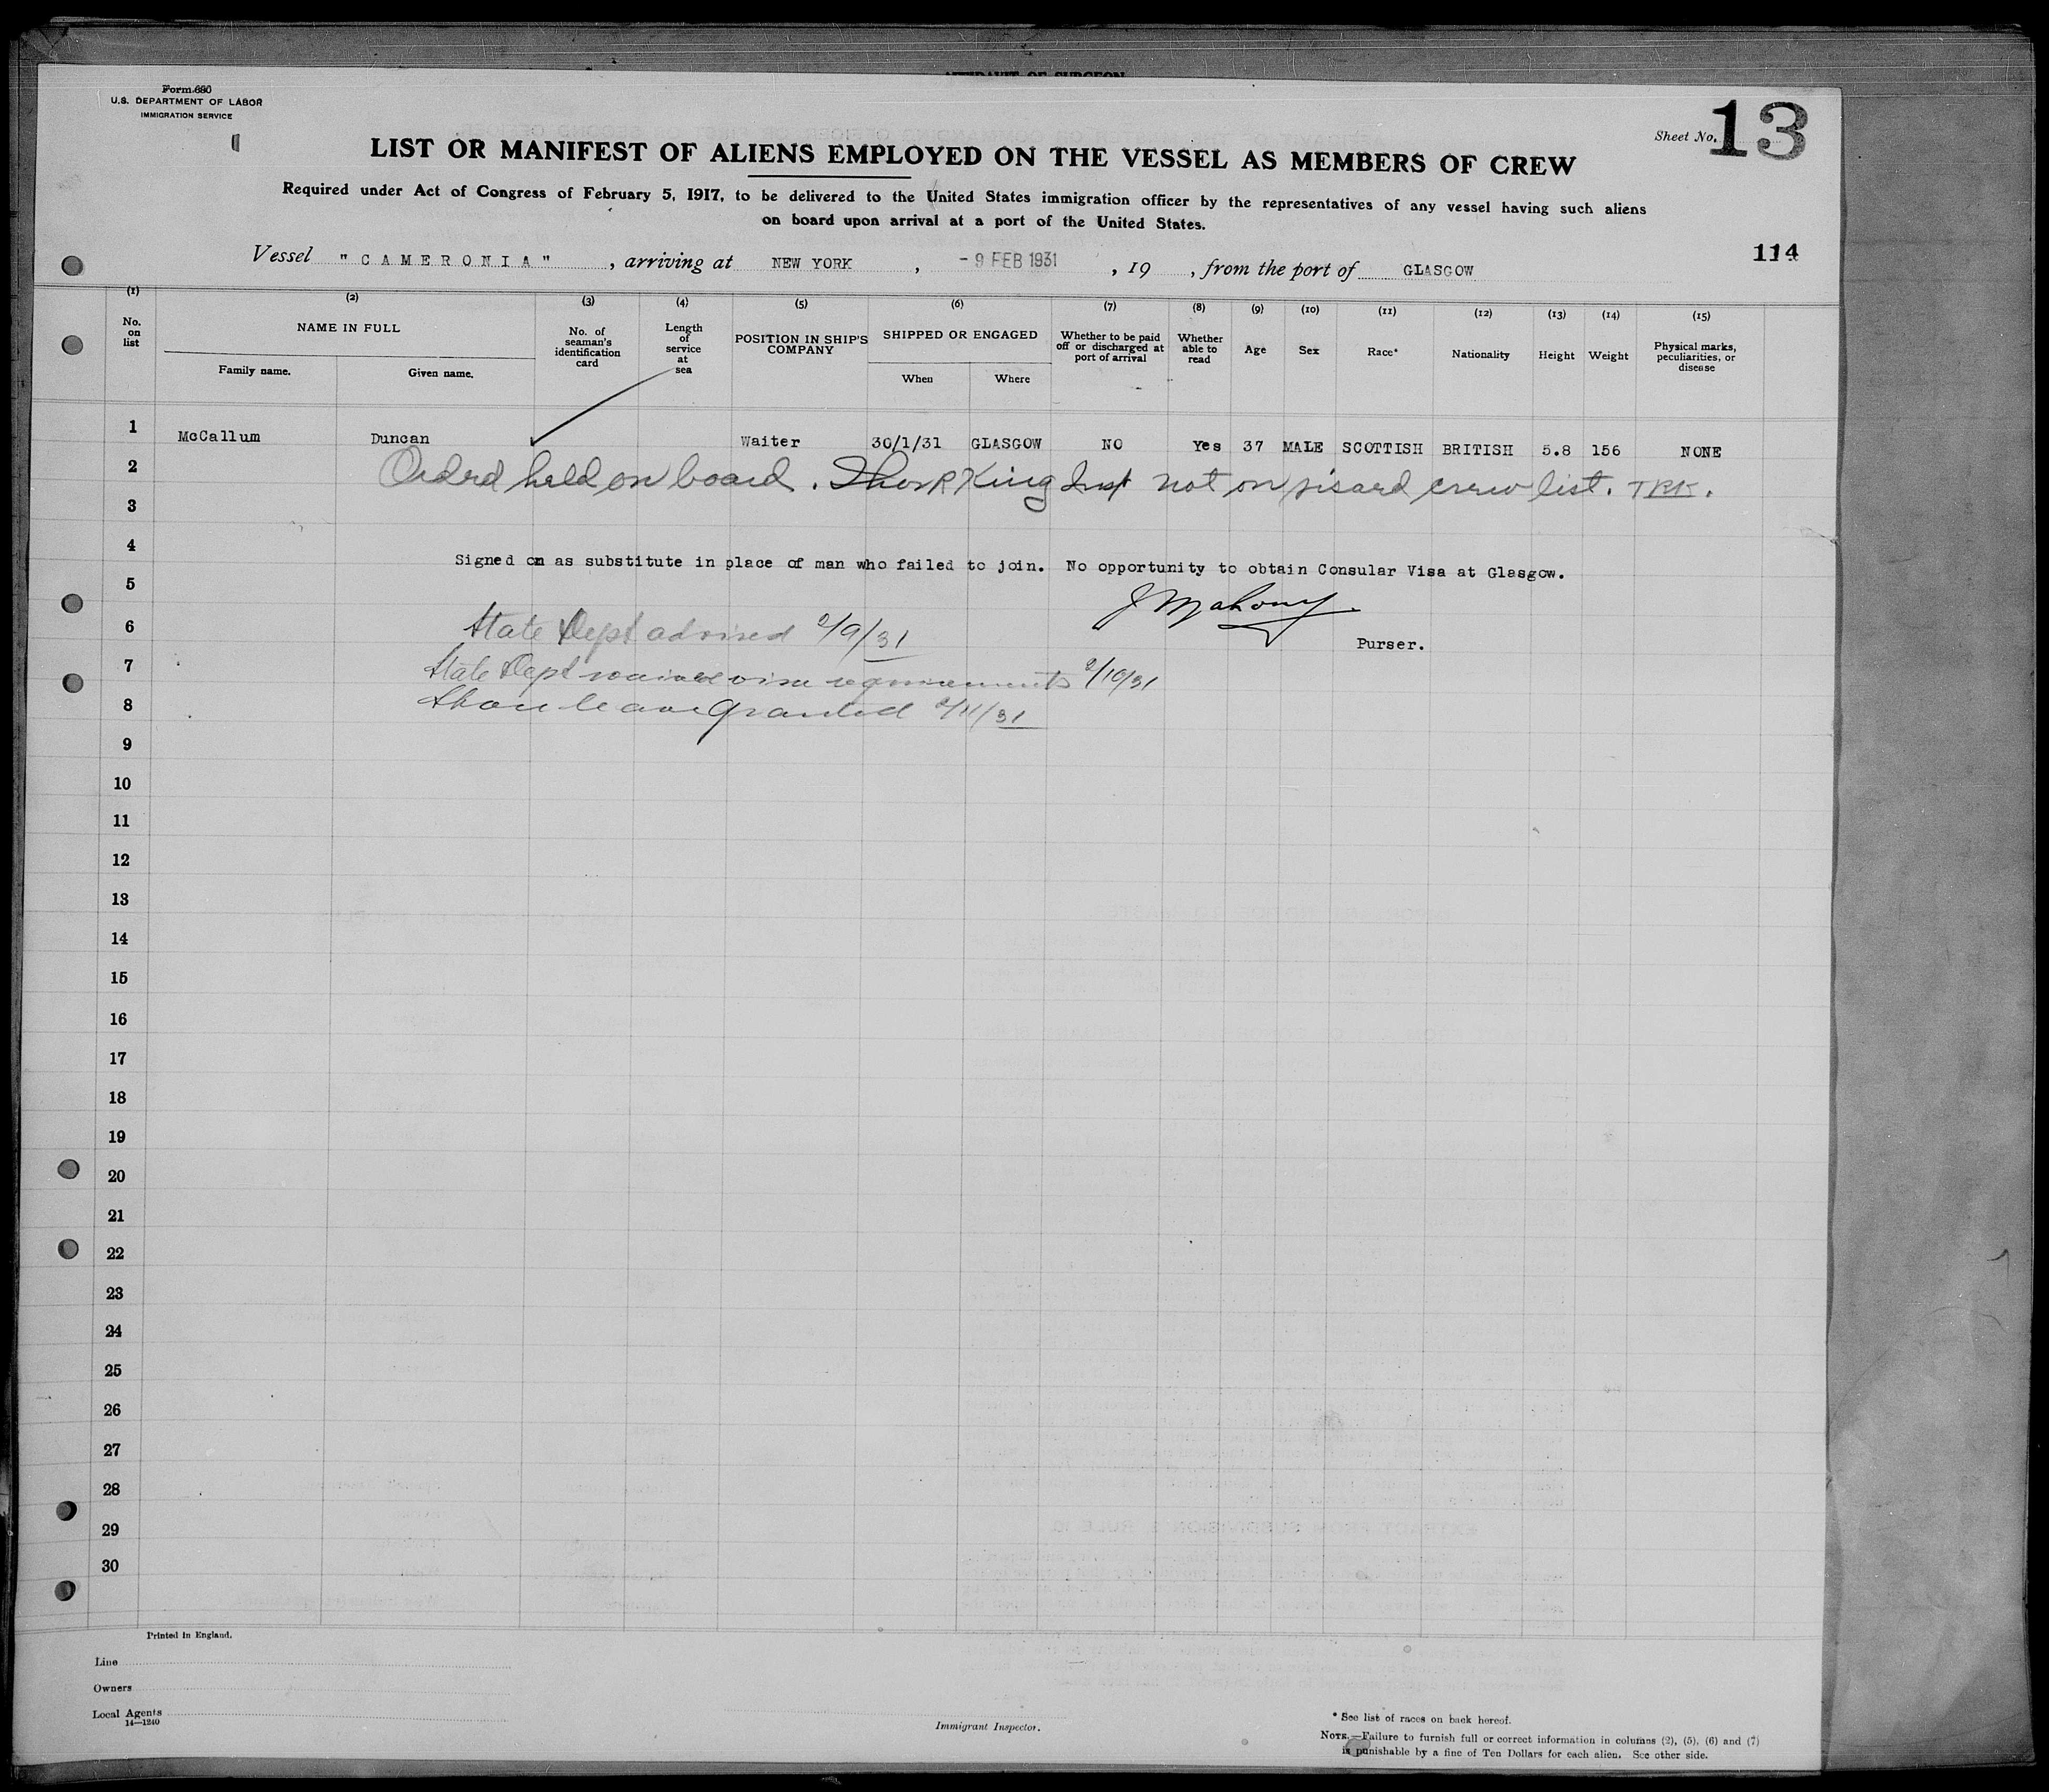 AFFIDAVIT OF SURGEON
Form 680
U.S. DEPARTMENT OF LABOR
IMMIGRATION SERVICE
Sheet No. 13
LIST OR MANIFEST OF ALIENS EMPLOYED ON THE VESSEL AS MEMBERS OF CREW
Required under Act of Congress of February 5, 1917, to be delivered to the United States immigration officer by the representatives of any vessel having such aliens
on board upon arrival at a port of the United States.
114
Vessel "CAMERONIA", arriving at NEW YORK, - 9 FEB 1931, 19 , from the port of GLASGOW
(1) (2) (3) (4) (5) (6) (7) (8) (9) (10) (11) (12) (13) (14) (15)
No. on list
NAME IN FULL
Family name. Given name.
No. of seaman's identification card
Length of service at sea
POSITION IN SHIP'S COMPANY
SHIPPED OR ENGAGED
When Where
Whether to be paid off or discharged at port of arrival
Whether able to read
Age
Sex
Race*
Nationality
Height
Weight
Physical marks, peculiarities, or disease
1 McCallum Duncan Waiter 30/1/31 GLASGOW NO Yes 37 MALE SCOTTISH BRITISH 5.8 156 NONE
2 Ordrd held on board. Thos R King Insp not on visaed crew list. TRK.
3
4
Signed on as substitute in place of man who failed to join. No opportunity to obtain Consular Visa at Glasgow.
5
J Mahony
6 State Dept advised 2/9/31
Purser.
7 State Dept waived visa requirements 2/10/31
8 Shore leave granted 2/11/31
9
10
11
12
13
14
15
16
17
18
19
20
21
22
23
24
25
26
27
28
29
30
Printed in England.
Line
Owners
Local Agents
14—1240
Immigrant Inspector.
* See list of races on back hereof.
NOTE.—Failure to furnish full or correct information in columns (2), (5), (6) and (7)
is punishable by a fine of Ten Dollars for each alien. See other side.